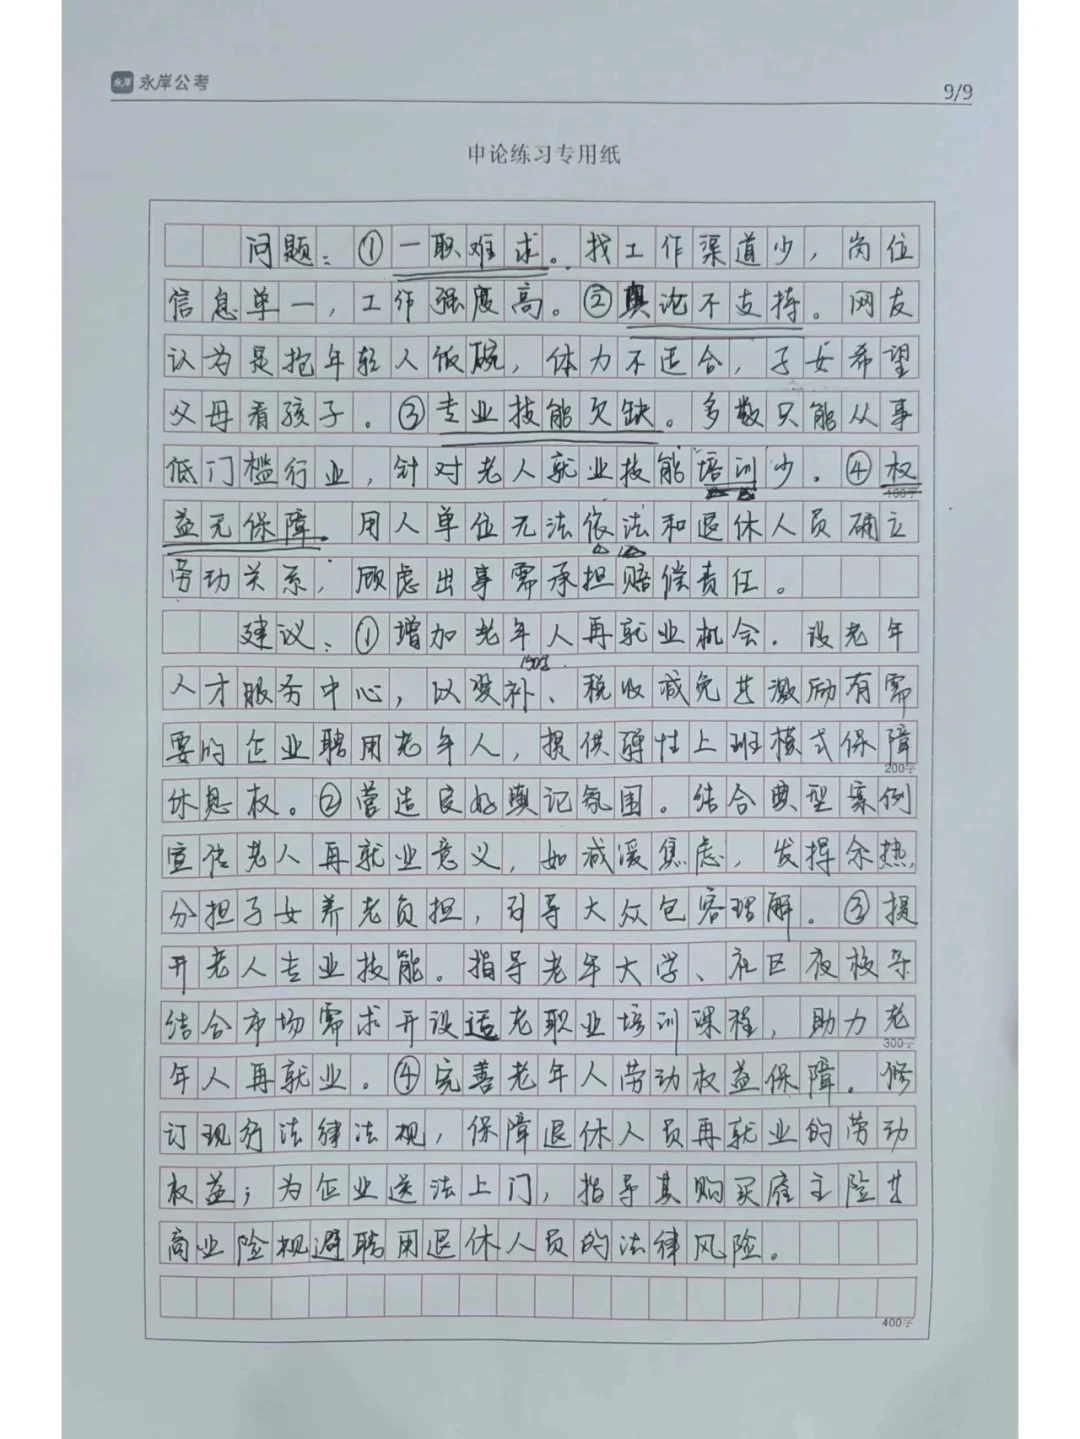 永岸公考
9/9
申论练习专用纸
问题：①一职难求。找工作渠道少，岗位
信息单一，工作强度高。②舆论不支持。网友
认为是抢年轻人饭碗，体力不适合，子女希望
父母看孩子。③专业技能欠缺。多数只能从事
低门槛行业，针对老人就业技能培训少。④权
100字
益无保障。用人单位无法依法和退休人员确立
劳动关系，顾虑出事需承担赔偿责任。
建议：①增加老年人再就业机会。设老年
人才服务中心，以奖补、税收减免其激励有需
要的企业聘用老年人，提供弹性上班模式保障
200字
休息权。②营造良好舆论氛围。结合典型案例
宣传老人再就业意义，如减缓焦虑，发挥余热，
分担子女养老负担，引导大众包容理解。③提
升老人专业技能。指导老年大学、社区夜校等
结合市场需求开设适老职业培训课程，助力老
300字
年人再就业。④完善老年人劳动权益保障。修
订现行法律法规，保障退休人员再就业的劳动
权益；为企业送法上门，指导其购买雇主险其
商业险规避聘用退休人员的法律风险。
400字